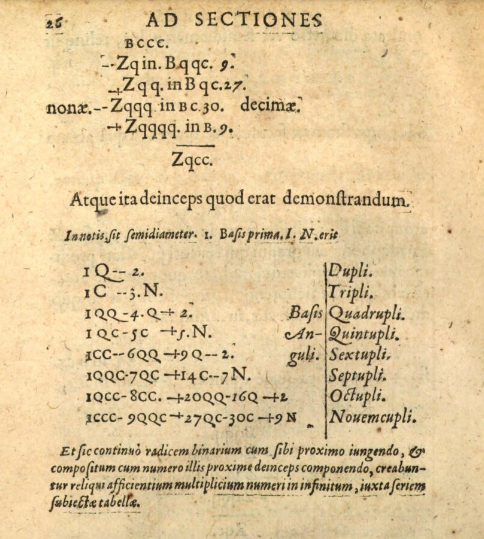 26 AD SECTIONES
BCCC.
--Zq in. Bqqc. 9.
+Zqq. in Bqc. 27.
nonæ.--Zqqq. in BC. 30. decimæ.
+Zqqqq. in B. 9.
Zqcc.
Atque ita deinceps quod erat demonstrandum.
In notis. sit semidiameter. 1. Basis prima. I. N. erit
1Q-- 2. Dupli.
1C --3. N. Tripli.
1QQ-4. Q+ 2. Basis Quadrupli.
1QC-5C +5. N. An- Quintupli.
1CC--6QQ+9Q--2. guli. Sextupli.
1QQC-7QC+14C--7N. Septupli.
1QCC-8CC. +20QQ-16Q+2 Octupli.
1CCC-9QQC+27QC-30C+9N Novemcupli.
Et sic continuò radicem binarium cum sibi proximo iungendo, &
compositum cum numero illis proxime deinceps componendo, creabun-
tur reliqui afficientium multiplicium numeri in infinitum, iuxta seriem
subiectæ tabellæ.